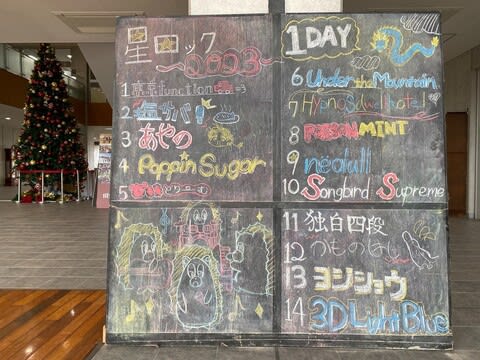 星ロック
2023
1 東京function
2 塩サバ!
3 あやの
4 Poppin Sugar
5
1DAY
6 Under the Mountain
7 Hypnos and will hotel
8 POISON MINT
9 neolull
10 Songbird Supreme
11 独白四段
12
13 ヨジショウ
14 3D Light Blue